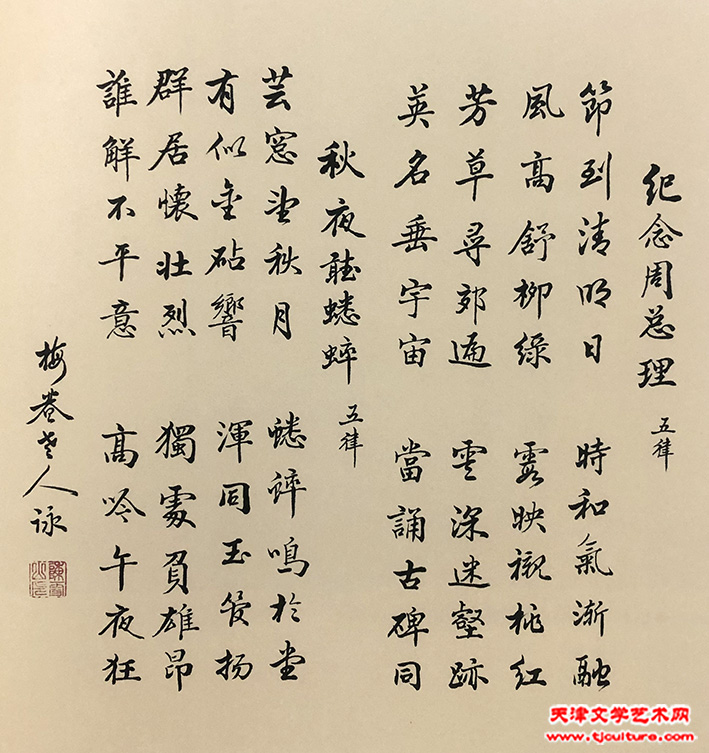 纪念周总理 五律
節到清明日 時和氣漸融
風高舒柳綠 霞映襯桃紅
芳草尋郊遍 雲深迷壑跡
英名垂宇宙 當誦古碑同
秋夜聽蟋蟀 五律
芸窓望秋月 蟋蟀鳴於堂
有似金砧響 渾同玉管扬
群居懷壯烈 獨處負雄昂
誰解不平意 高吟午夜狂
梅菴老人詠
天津文学艺术网
www.tjculture.com